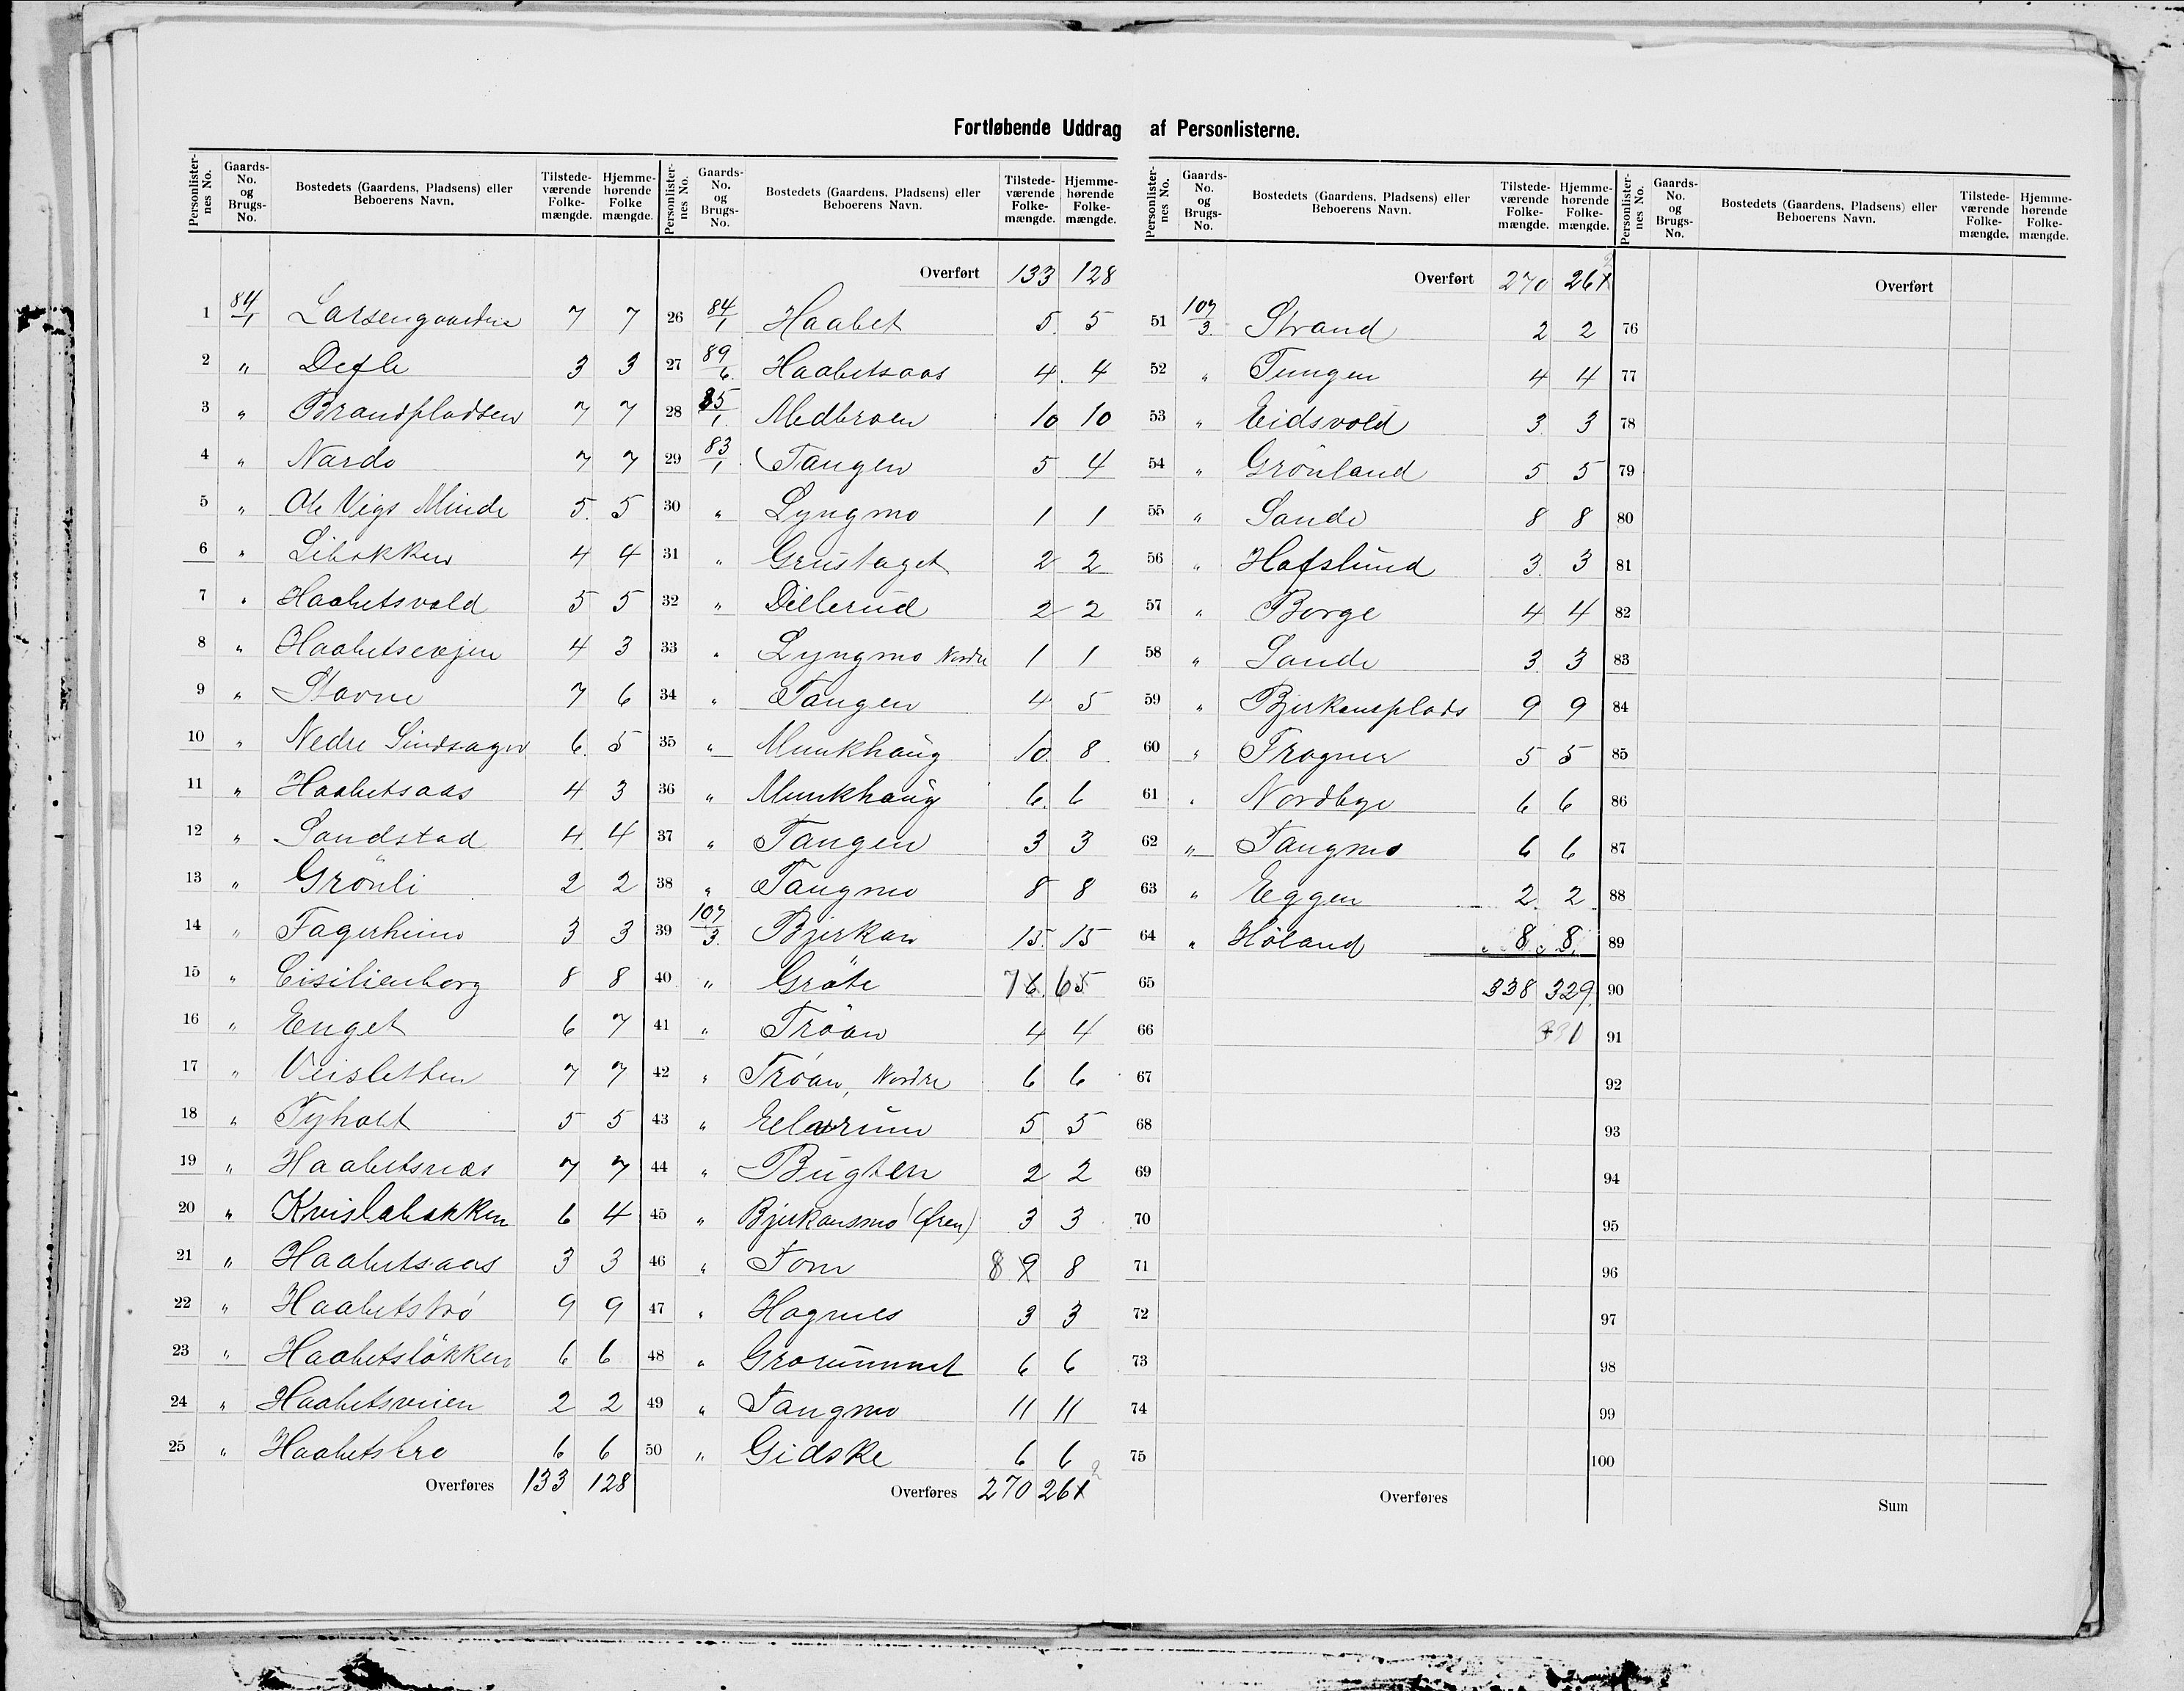 Fortløbende Uddrag af Personlisterne.
Personlisternes No. Gaards-No. og Brugs-No. Bostedets (Gaardens, Pladsens) eller Beboerens Navn. Tilstedeværende Folkemængde. Hjemmehørende Folkemængde.
1 84/1 Larsengaarden 7 7
2 " Defle 3 3
3 " Brandpladsen 7 7
4 " Nardo 7 7
5 " Ole Vigs Minde 5 5
6 " Libakken 4 4
7 " Haabetsvold 5 5
8 " Haabetsexjen 4 3
9 " Stavne 7 6
10 " Nedre Sindsager 6 5
11 " Haabetsaas 4 3
12 " Sandstad 4 4
13 " Grönli 2 2
14 " Fagerheim 3 3
15 " Cisilienborg 8 8
16 " Enget 6 7
17 " Veisletten 7 7
18 " Tyholt 5 5
19 " Haabetsnæs 7 7
20 " Kvislabakken 6 4
21 " Haabetsaas 3 3
22 " Haabetströ 9 9
23 " Haabetslökken 6 6
24 " Haabetsveien 2 2
25 " Haabetsbro 6 6
Overføres 133 128
Overført 133 128
26 84/1 Haabet 5 5
27 89/6 Haabetsaas 4 4
28 85/1 Medbroen 10 10
29 83/1 Tangen 5 4
30 " Lyngmo 1 1
31 " Grustaget 2 2
32 " Dillerud 2 2
33 " Lyngmo Nordre 1 1
34 " Tangen 4 5
35 " Munkhaug 10 8
36 " Munkhaug 6 6
37 " Tangen 3 3
38 " Tangmo 8 8
39 107/3 Bjerkan 15 15
40 " Gröte 7 6 6 5
41 " Tröan 4 4
42 " Tröan, Nordre 6 6
43 " Elverum 5 5
44 " Bugten 2 2
45 " Bjerkansmo (Øren) 3 3
46 " Tom 8 9 8
47 " Hagnes 3 3
48 " Grorummet 6 6
49 " Tangmo 11 11
50 " Gidske 6 6
Overføres 270 261 2
Overført 270 261 2
51 107/3 Strand 2 2
52 " Tungen 4 4
53 " Eidsvold 3 3
54 " Grönland 5 5
55 " Sande 8 8
56 " Hafslund 3 3
57 " Borge 4 4
58 " Sande 3 3
59 " Bjerkansplads 9 9
60 " Frogner 5 5
61 " Nordbye 6 6
62 " Tangmo 6 6
63 " Eggen 2 2
64 " Höland 8 8
65 338 329
66 331
67
68
69
70
71
72
73
74
75
Overføres
Overført
76
77
78
79
80
81
82
83
84
85
86
87
88
89
90
91
92
93
94
95
96
97
98
99
100
Sum